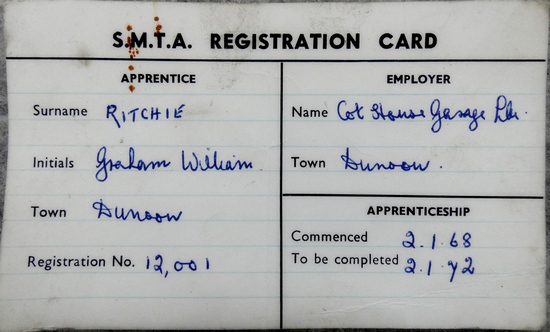 S.M.T.A. REGISTRATION CARD
APPRENTICE
Surname RITCHIE
Initials Graham William
Town Dunoon
Registration No. 12,001
EMPLOYER
Name Cot House Garage Ltd.
Town Dunoon.
APPRENTICESHIP
Commenced 2.1.68
To be completed 2.1.72